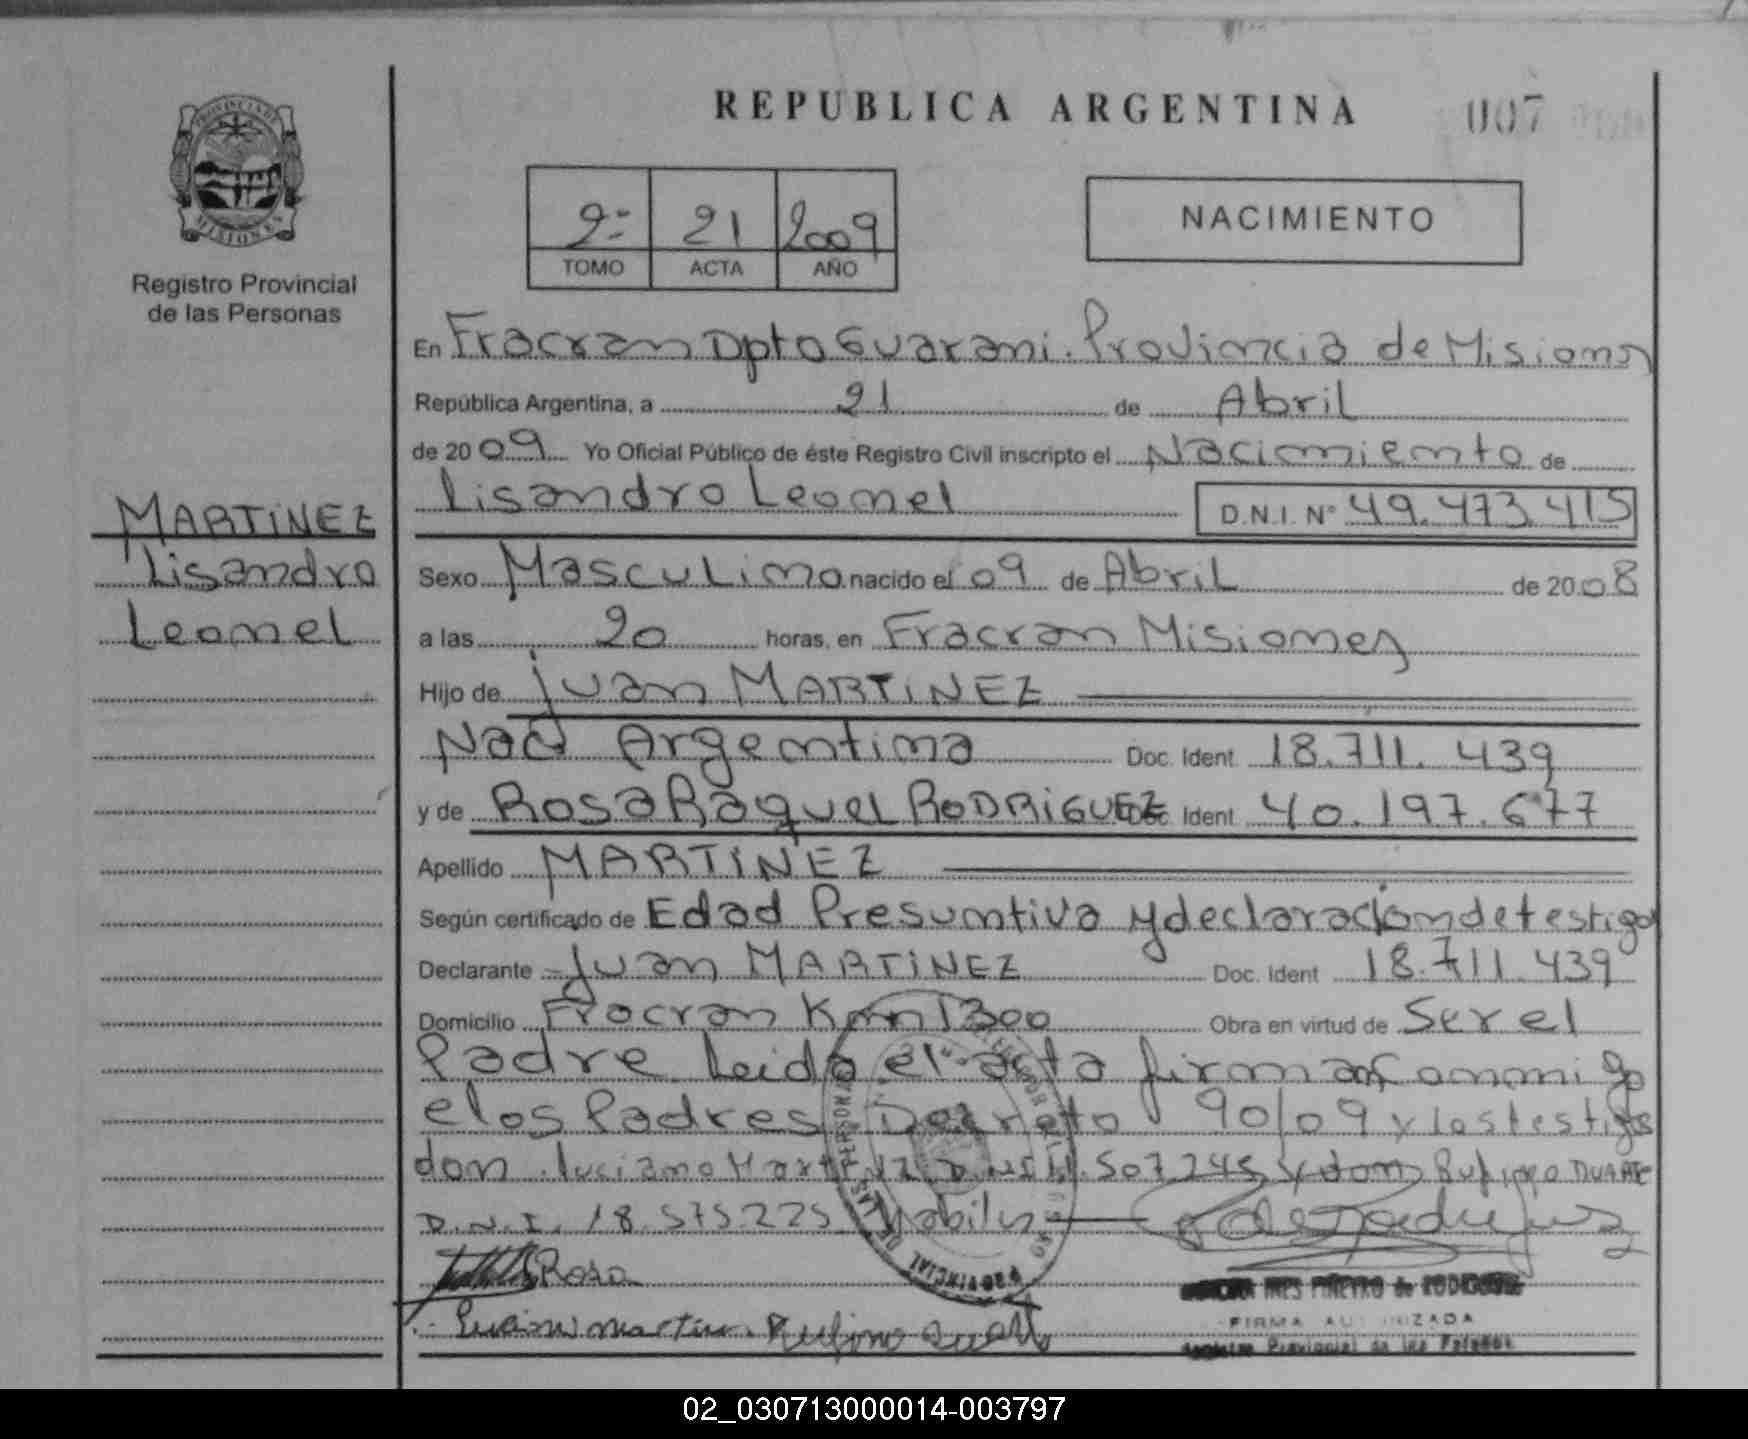 REPUBLICA ARGENTINA
007
PROVINCIA DE
MISIONES
Registro Provincial
de las Personas
2º 21 2009
TOMO ACTA AÑO
NACIMIENTO
En Fracran Dpto Guarani. Provincia de Misiones
República Argentina, a 21 de Abril
de 2009 Yo Oficial Público de éste Registro Civil inscripto el Nacimiento de
Lisandro Leonel D.N.I. Nº 49.473.415
MARTINEZ
Lisandro
Leonel
Sexo Masculino nacido el 09 de Abril de 2008
a las 20 horas, en Fracran Misiones
Hijo de Juan MARTINEZ
Nac Argentina Doc. Ident. 18.711.439
y de Rosa Raquel RODRIGUEZ Doc. Ident. 40.197.677
Apellido MARTINEZ
Según certificado de Edad Presuntiva y declaración de testigos
Declarante Juan MARTINEZ Doc. Ident 18.711.439
Domicilio Fracran Km 1300 Obra en virtud de Ser el
Padre Leida el acta firman conmigo
los Padres Decreto 90/09 y los testigos
don Luciano Martinez D.N.I. 507.245 y don Rufino DUARTE
D.N.I. 18.575.225
Rosa
Luciano martinez Rufino
PIÑEYRO de
FIRMA AUTORIZADA
Registro Provincial de las Personas
02_030713000014-003797